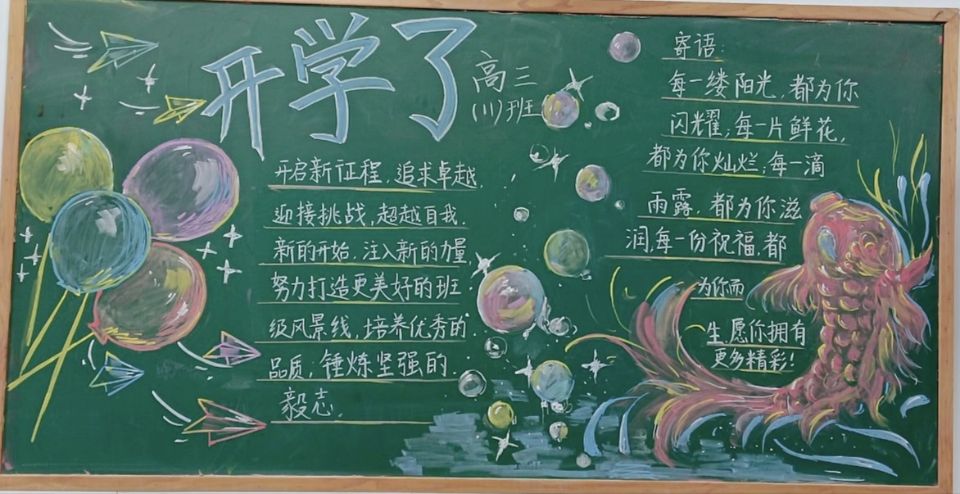 开学了
高三
(11)班
开启新征程,追求卓越,
迎接挑战,超越自我.
新的开始,注入新的力量,
努力打造更美好的班
级风景线,培养优秀的
品质,锤炼坚强的
毅志.
寄语:
每一缕阳光,都为你
闪耀;每一片鲜花,
都为你灿烂;每一滴
雨露,都为你滋
润,每一份祝福,都
为你而
生,愿你拥有
更多精彩!